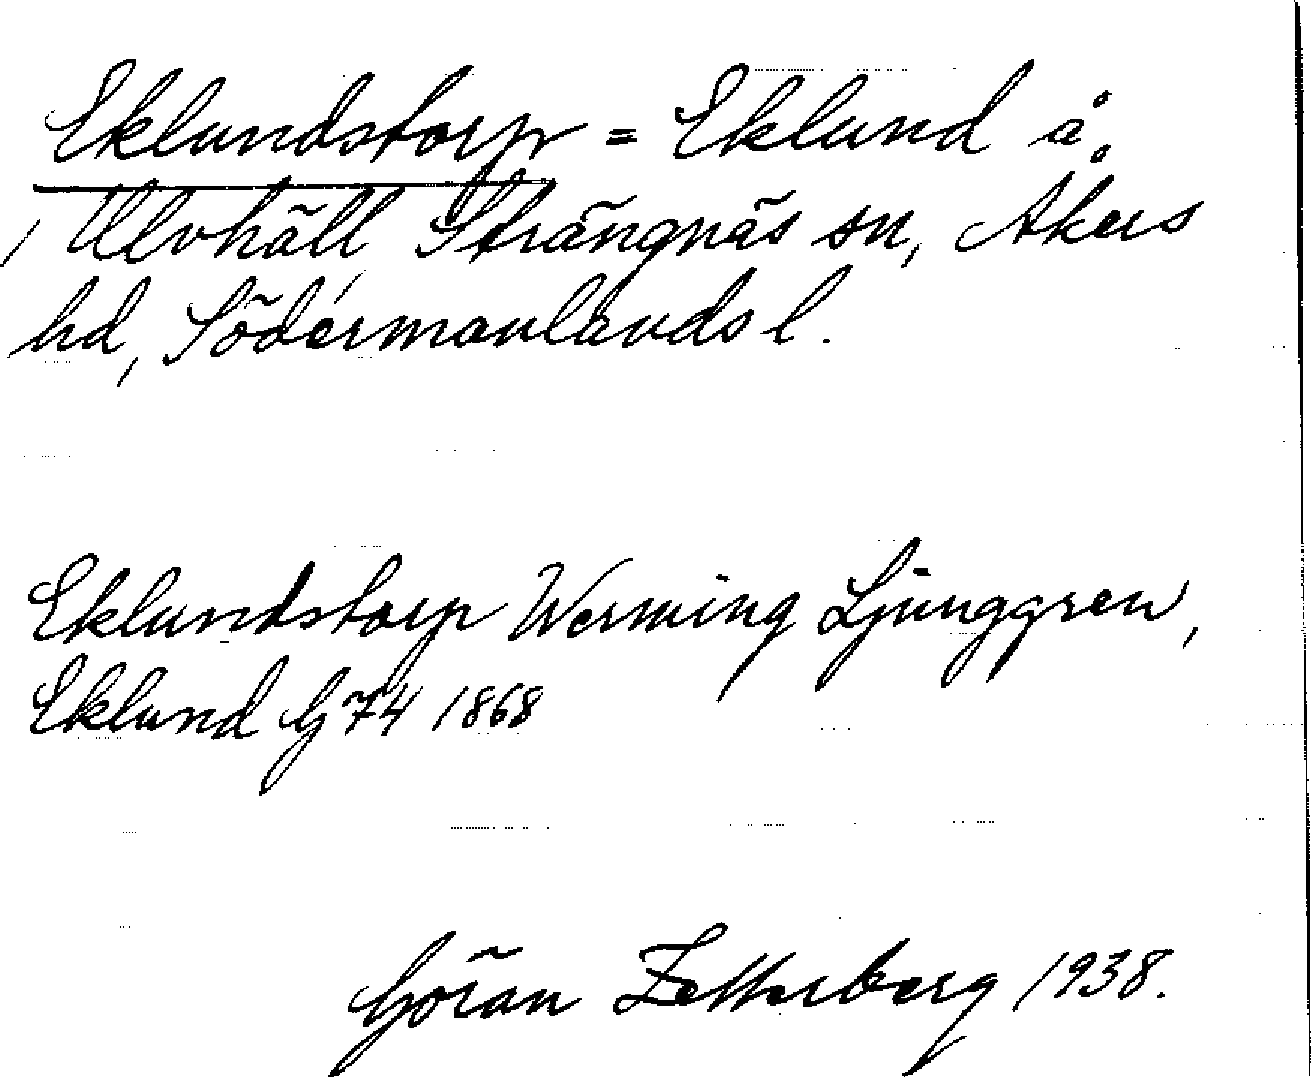 Eklundstorp = Eklund å
Ulvhäll, Strängnäs sn, Åkers
hd, Södermanlands l.
Eklundstorp Werming Ljunggren,
Eklund G 74 1868
Göran Zetterberg 1938.